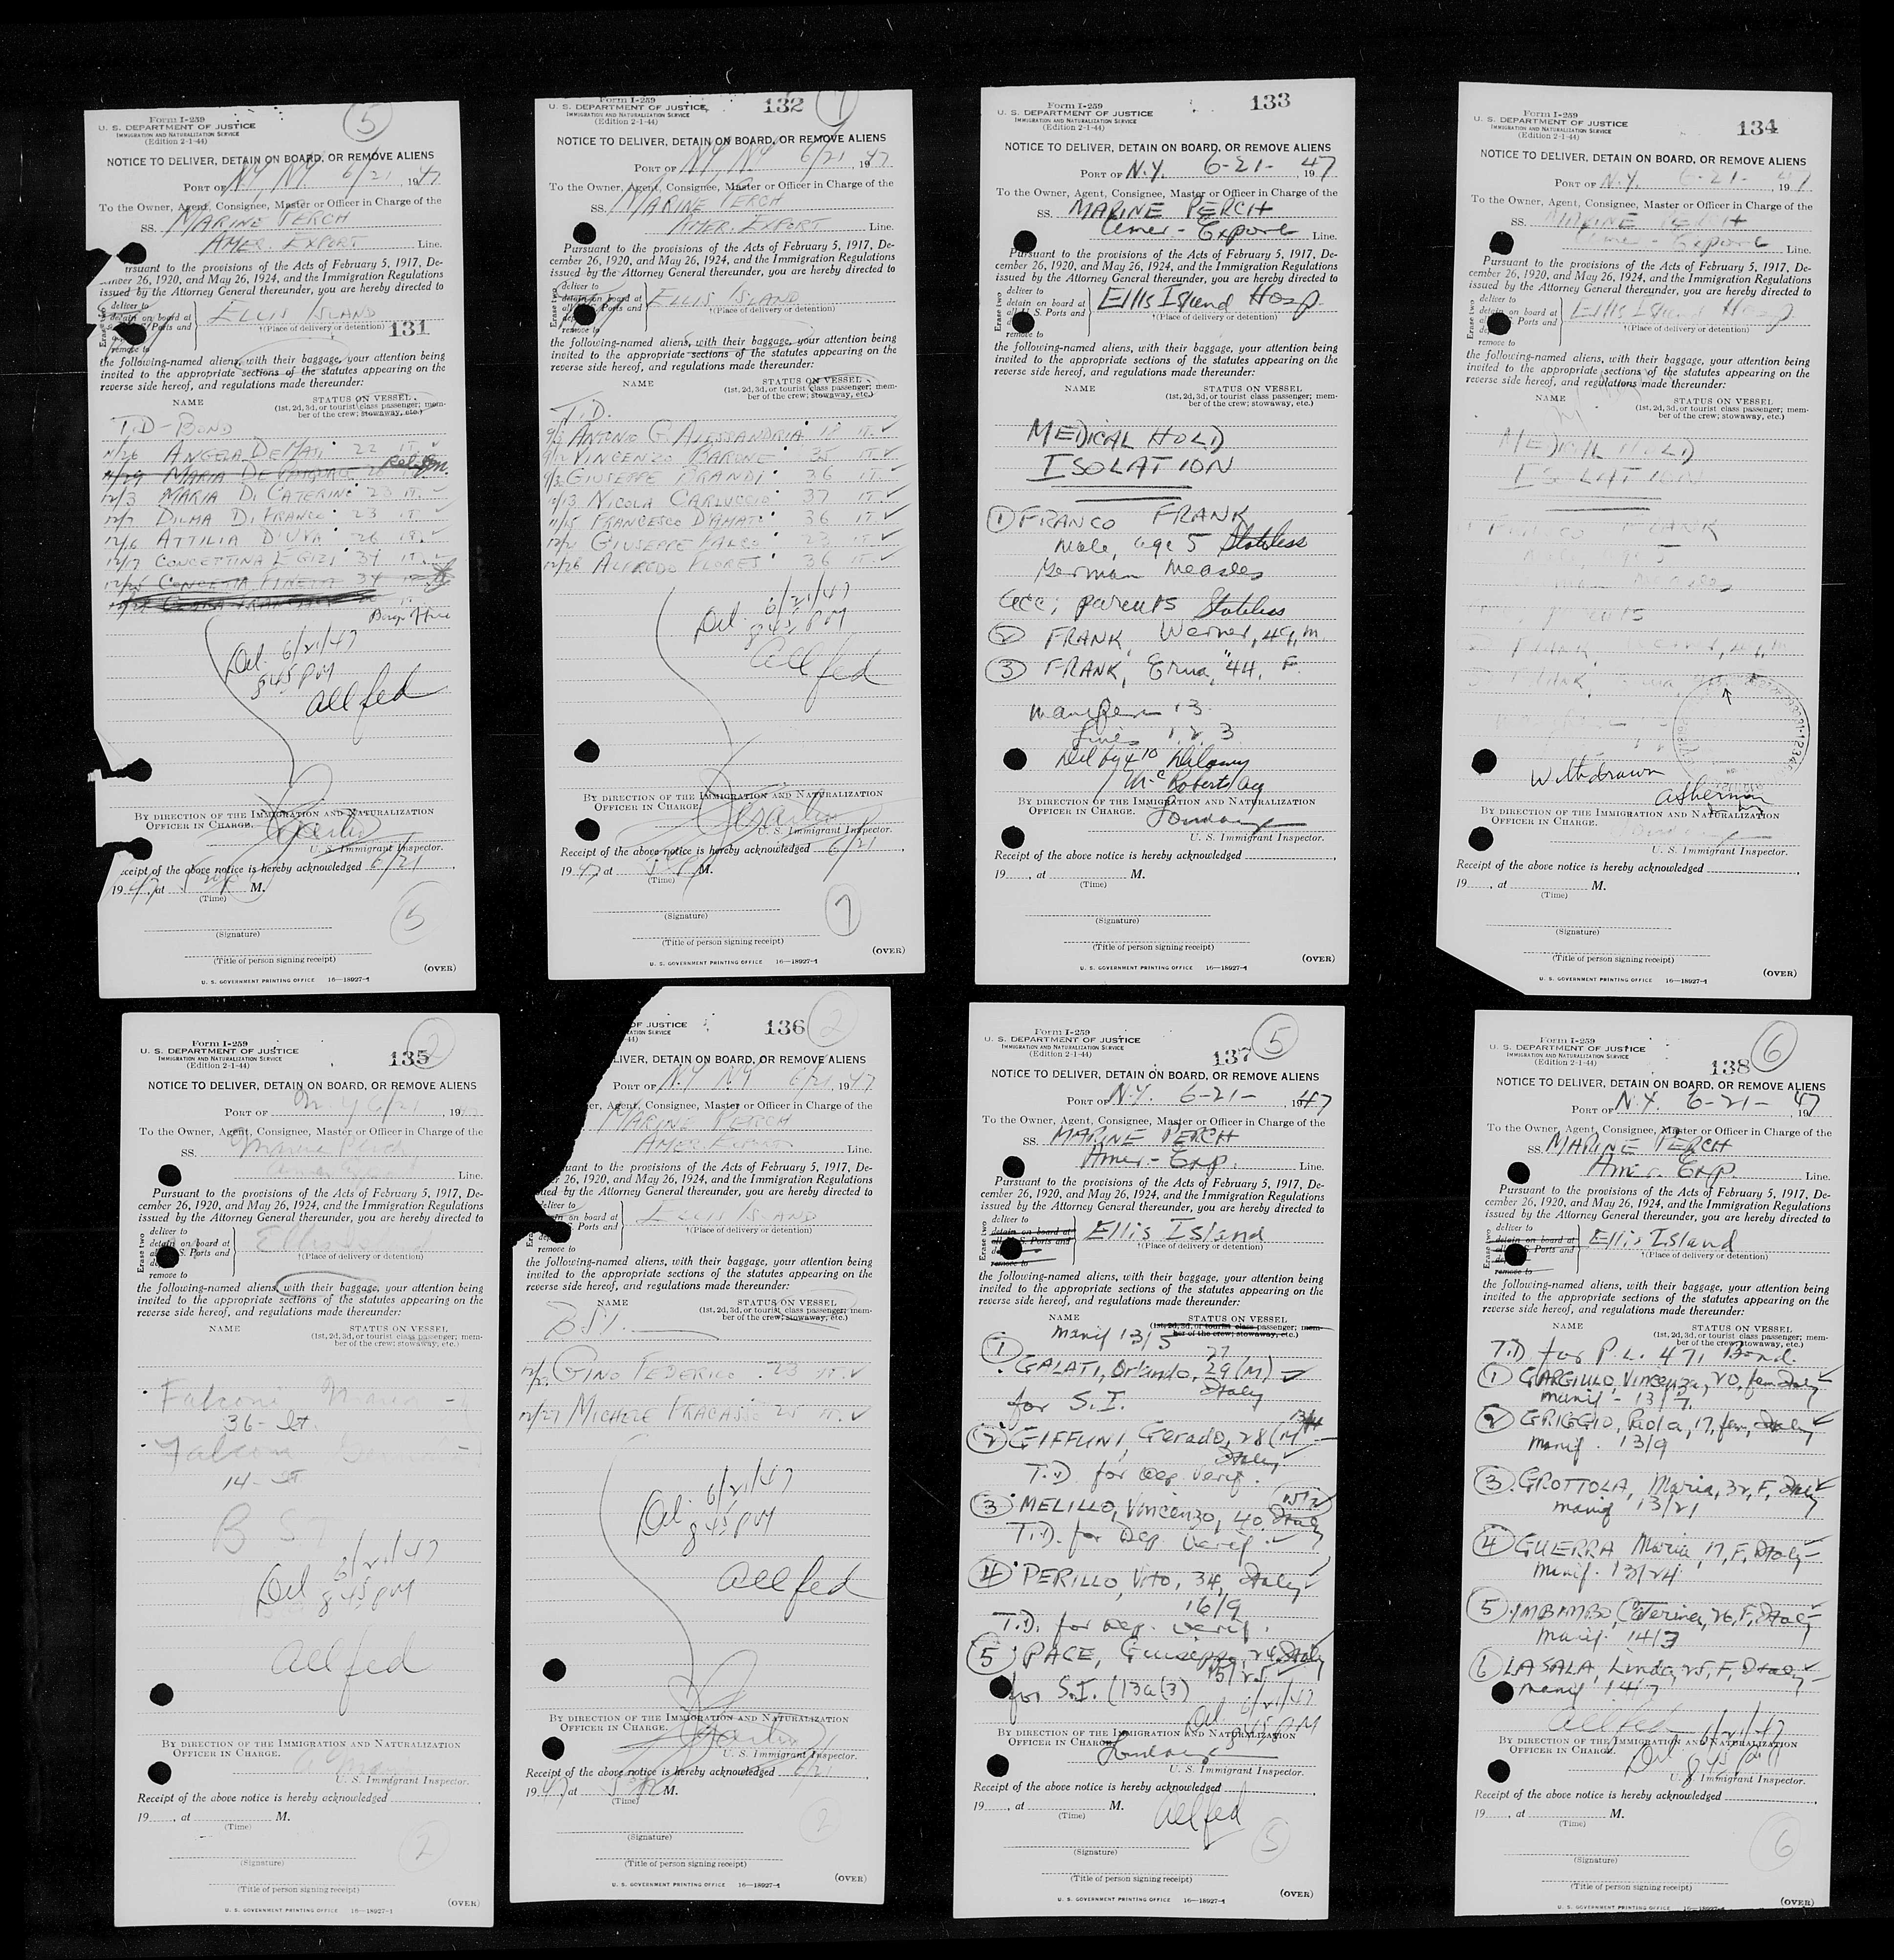 Form I-259
U. S. DEPARTMENT OF JUSTICE
IMMIGRATION AND NATURALIZATION SERVICE
(Edition 2-1-44)
5
NOTICE TO DELIVER, DETAIN ON BOARD, OR REMOVE ALIENS
PORT OF NY, NY. 6/21, 1947
To the Owner, Agent, Consignee, Master or Officer in Charge of the
SS. MARINE PERCH
AMER. EXPORT Line.
ursuant to the provisions of the Acts of February 5, 1917, De-
mber 26, 1920, and May 26, 1924, and the Immigration Regulations
issued by the Attorney General thereunder, you are hereby directed to
Erase two
deliver to
detain on board at
Ports and
remove to
ELLIS ISLAND
†(Place of delivery or detention) 131
the following-named aliens, with their baggage, your attention being
invited to the appropriate sections of the statutes appearing on the
reverse side hereof, and regulations made thereunder:
NAME STATUS ON VESSEL
(1st, 2d, 3d, or tourist class passenger; mem-
ber of the crew; stowaway, etc.)
T.D - BOND
11/26 ANGELA DEMASI 22 IT. ✓
11/29 MARIA
12/3 MARIA DI CATERINO 23 IT. ✓
12/7 DILMA DI FRANCO 23 IT ✓
12/16 ATTILIA D'UVA 26 IT. ✓
12/17 CONCETTINA EGIZI 34 IT. ✓
CONCETTA 34
Del. 6/21/47
8 45 PM
All fed
BY DIRECTION OF THE IMMIGRATION AND NATURALIZATION
OFFICER IN CHARGE.
U. S. Immigrant Inspector.
eceipt of the above notice is hereby acknowledged 6/21
1947, at M.
(Time)
5
(Signature)
(Title of person signing receipt)
(OVER)
U. S. GOVERNMENT PRINTING OFFICE 16—18927-1
Form I-259
U. S. DEPARTMENT OF JUSTICE
IMMIGRATION AND NATURALIZATION SERVICE
(Edition 2-1-44)
132 7
NOTICE TO DELIVER, DETAIN ON BOARD, OR REMOVE ALIENS
PORT OF NY, NY. 6/21, 1947
To the Owner, Agent, Consignee, Master or Officer in Charge of the
SS. MARINE PERCH
AMER. EXPORT Line.
Pursuant to the provisions of the Acts of February 5, 1917, De-
cember 26, 1920, and May 26, 1924, and the Immigration Regulations
issued by the Attorney General thereunder, you are hereby directed to
Erase two
deliver to
detain on board at
all U. S. Ports and
remove to
ELLIS ISLAND
†(Place of delivery or detention)
the following-named aliens, with their baggage, your attention being
invited to the appropriate sections of the statutes appearing on the
reverse side hereof, and regulations made thereunder:
NAME STATUS ON VESSEL
(1st, 2d, 3d, or tourist class passenger; mem-
ber of the crew; stowaway, etc.)
T.D.
ANTONIO G. ALESSANDRIA 18 IT. ✓
VINCENZO BARONE 35 IT ✓
GIUSEPPE BRANDI 36 IT ✓
NICOLA CARLUCCIO 37 IT ✓
11/15 FRANCESCO D'AMATO 36 IT ✓
GIUSEPPE FALCO 23 IT ✓
12/28 ALFREDO FLORES 36 IT. ✓
6/21/47
Del. 8 45 PM
All fed
BY DIRECTION OF THE IMMIGRATION AND NATURALIZATION
OFFICER IN CHARGE.
U. S. Immigrant Inspector.
Receipt of the above notice is hereby acknowledged 6/21
1947, at M.
(Time)
7
(Signature)
(Title of person signing receipt)
(OVER)
U. S. GOVERNMENT PRINTING OFFICE 16—18927-1
Form I-259
U. S. DEPARTMENT OF JUSTICE
IMMIGRATION AND NATURALIZATION SERVICE
(Edition 2-1-44)
133
NOTICE TO DELIVER, DETAIN ON BOARD, OR REMOVE ALIENS
PORT OF N.Y. 6-21-, 1947
To the Owner, Agent, Consignee, Master or Officer in Charge of the
SS. MARINE PERCH
Amer - Export Line.
Pursuant to the provisions of the Acts of February 5, 1917, De-
cember 26, 1920, and May 26, 1924, and the Immigration Regulations
issued by the Attorney General thereunder, you are hereby directed to
Erase two
deliver to
detain on board at
all U. S. Ports and
remove to
Ellis Island Hosp.
†(Place of delivery or detention)
the following-named aliens, with their baggage, your attention being
invited to the appropriate sections of the statutes appearing on the
reverse side hereof, and regulations made thereunder:
NAME STATUS ON VESSEL
(1st, 2d, 3d, or tourist class passenger; mem-
ber of the crew; stowaway, etc.)
MEDICAL HOLD
ISOLATION
1 FRANCO FRANK
male, age 5 Stateless
German Measles
acc; parents Stateless
2 FRANK, Werner, 49, m
3 FRANK, Erna, 44, F.
manifest 13
Lines 1, 2, 3
BY DIRECTION OF THE IMMIGRATION AND NATURALIZATION
OFFICER IN CHARGE.
U. S. Immigrant Inspector.
Receipt of the above notice is hereby acknowledged
19, at M.
(Time)
(Signature)
(Title of person signing receipt)
(OVER)
U. S. GOVERNMENT PRINTING OFFICE 16—18927-1
Form I-259
U. S. DEPARTMENT OF JUSTICE
IMMIGRATION AND NATURALIZATION SERVICE
(Edition 2-1-44)
134
NOTICE TO DELIVER, DETAIN ON BOARD, OR REMOVE ALIENS
PORT OF N.Y. 6-21-, 1947
To the Owner, Agent, Consignee, Master or Officer in Charge of the
SS. MARINE PERCH
Amer - Export Line.
Pursuant to the provisions of the Acts of February 5, 1917, De-
cember 26, 1920, and May 26, 1924, and the Immigration Regulations
issued by the Attorney General thereunder, you are hereby directed to
Erase two
deliver to
detain on board at
Ports and
remove to
Ellis Island Hosp
†(Place of delivery or detention)
the following-named aliens, with their baggage, your attention being
invited to the appropriate sections of the statutes appearing on the
reverse side hereof, and regulations made thereunder:
NAME STATUS ON VESSEL
(1st, 2d, 3d, or tourist class passenger; mem-
ber of the crew; stowaway, etc.)
MEDICAL HOLD
ISOLATION
FRANCO FRANK
Withdrawn
BY DIRECTION OF THE IMMIGRATION AND NATURALIZATION
OFFICER IN CHARGE.
U. S. Immigrant Inspector.
Receipt of the above notice is hereby acknowledged
19, at M.
(Time)
(Signature)
(Title of person signing receipt)
(OVER)
U. S. GOVERNMENT PRINTING OFFICE 16—18927-1
Form I-259
U. S. DEPARTMENT OF JUSTICE
IMMIGRATION AND NATURALIZATION SERVICE
(Edition 2-1-44)
135 2
NOTICE TO DELIVER, DETAIN ON BOARD, OR REMOVE ALIENS
PORT OF N.Y. 6/21, 1947
To the Owner, Agent, Consignee, Master or Officer in Charge of the
SS. Marine Perch
Line.
Pursuant to the provisions of the Acts of February 5, 1917, De-
cember 26, 1920, and May 26, 1924, and the Immigration Regulations
issued by the Attorney General thereunder, you are hereby directed to
Erase two
deliver to
detain on board at
S. Ports and
remove to
†(Place of delivery or detention)
the following-named aliens, with their baggage, your attention being
invited to the appropriate sections of the statutes appearing on the
reverse side hereof, and regulations made thereunder:
NAME STATUS ON VESSEL
(1st, 2d, 3d, or tourist class passenger; mem-
ber of the crew; stowaway, etc.)
Falconi
36 - It.
Falconi
14 - It
B S I
6/21/47
Del 8 45 PM
All fed
BY DIRECTION OF THE IMMIGRATION AND NATURALIZATION
OFFICER IN CHARGE.
U. S. Immigrant Inspector.
Receipt of the above notice is hereby acknowledged
19, at M.
(Time)
2
(Signature)
(Title of person signing receipt)
(OVER)
U. S. GOVERNMENT PRINTING OFFICE 16—18927-1
OF JUSTICE
136 2
LIVER, DETAIN ON BOARD, OR REMOVE ALIENS
PORT OF N.Y NY 6/21, 1947
er, Agent, Consignee, Master or Officer in Charge of the
MARINE PERCH
AMER. EXPORT Line.
uant to the provisions of the Acts of February 5, 1917, De-
26, 1920, and May 26, 1924, and the Immigration Regulations
ued by the Attorney General thereunder, you are hereby directed to
deliver to
on board at
S. Ports and
remove to
ELLIS ISLAND
†(Place of delivery or detention)
the following-named aliens, with their baggage, your attention being
invited to the appropriate sections of the statutes appearing on the
reverse side hereof, and regulations made thereunder:
NAME STATUS ON VESSEL
(1st, 2d, 3d, or tourist class passenger; mem-
ber of the crew; stowaway, etc.)
B S I.
GINO FEDERICO 23 IT. ✓
12/27 MICHELE FRACASSO 25 IT. ✓
6/21/47
Del 8 45 PM
All fed
BY DIRECTION OF THE IMMIGRATION AND NATURALIZATION
OFFICER IN CHARGE.
U. S. Immigrant Inspector.
Receipt of the above notice is hereby acknowledged 6/21
1947, at M.
(Time)
2
(Signature)
(Title of person signing receipt)
(OVER)
U. S. GOVERNMENT PRINTING OFFICE 16—18927-1
Form I-259
U. S. DEPARTMENT OF JUSTICE
IMMIGRATION AND NATURALIZATION SERVICE
(Edition 2-1-44)
137 5
NOTICE TO DELIVER, DETAIN ON BOARD, OR REMOVE ALIENS
PORT OF N.Y. 6-21-, 1947
To the Owner, Agent, Consignee, Master or Officer in Charge of the
SS. MARINE PERCH
Amer - Exp. Line.
Pursuant to the provisions of the Acts of February 5, 1917, De-
cember 26, 1920, and May 26, 1924, and the Immigration Regulations
issued by the Attorney General thereunder, you are hereby directed to
Erase two
deliver to
detain on board at
all U. S. Ports and
remove to
Ellis Island
†(Place of delivery or detention)
the following-named aliens, with their baggage, your attention being
invited to the appropriate sections of the statutes appearing on the
reverse side hereof, and regulations made thereunder:
NAME STATUS ON VESSEL
(1st, 2d, 3d, or tourist class passenger; mem-
ber of the crew; stowaway, etc.)
manif 13/5
1 GALATI, Orlando, 29 (M) ✓
Italy
for S.I.
2 GIFFUNI, Gerado, 28 (M)
Italy
T.D. for Dep. Verif.
3 MELILLO, Vincenzo, 40, Italy
15/2
T.D. for Dep. Verif. ✓
4 PERILLO, Vito, 34, Italy ✓
16/9
T.D. for Dep. Verif.
5 PACE, Guiseppe, 24, Italy
15/25
for S.I. (13a(3)
Del. 6/21/47
8 45 PM
BY DIRECTION OF THE IMMIGRATION AND NATURALIZATION
OFFICER IN CHARGE
Receipt of the above notice is hereby acknowledged
19, at M.
(Time)
All fed
5
(Signature)
(Title of person signing receipt)
(OVER)
U. S. GOVERNMENT PRINTING OFFICE 16—18927-1
Form I-259
U. S. DEPARTMENT OF JUSTICE
IMMIGRATION AND NATURALIZATION SERVICE
(Edition 2-1-44)
138 6
NOTICE TO DELIVER, DETAIN ON BOARD, OR REMOVE ALIENS
PORT OF N.Y. 6-21-, 1947
To the Owner, Agent, Consignee, Master or Officer in Charge of the
SS. MARINE PERCH
Amer. Exp Line.
Pursuant to the provisions of the Acts of February 5, 1917, De-
cember 26, 1920, and May 26, 1924, and the Immigration Regulations
issued by the Attorney General thereunder, you are hereby directed to
Erase two
deliver to
detain on board at
S. Ports and
remove to
Ellis Island
†(Place of delivery or detention)
the following-named aliens, with their baggage, your attention being
invited to the appropriate sections of the statutes appearing on the
reverse side hereof, and regulations made thereunder:
NAME STATUS ON VESSEL
(1st, 2d, 3d, or tourist class passenger; mem-
ber of the crew; stowaway, etc.)
T.D for P.L. 471 Bond.
1 GARGIULO, Vincenza, 20, fem Italy
manif - 13/7
2 GRIGGIO, Paola, 17, fem, Italy
manif. 13/9
3 GROTTOLA, Maria, 32, F, Italy
manif 13/21
4 GUERRA Maria, 17, F, Italy
manif. 13/24
5 IMBIMBO, Caterina, 26, F, Italy
manif. 14/3
6 LA SALA, Linda, 25, F, Italy
manif 14/7
All fed 6/21/47
Del 8 45 PM
BY DIRECTION OF THE IMMIGRATION AND NATURALIZATION
OFFICER IN CHARGE.
U. S. Immigrant Inspector.
Receipt of the above notice is hereby acknowledged
19, at M.
(Time)
6
(Signature)
(Title of person signing receipt)
(OVER)
U. S. GOVERNMENT PRINTING OFFICE 16—18927-1